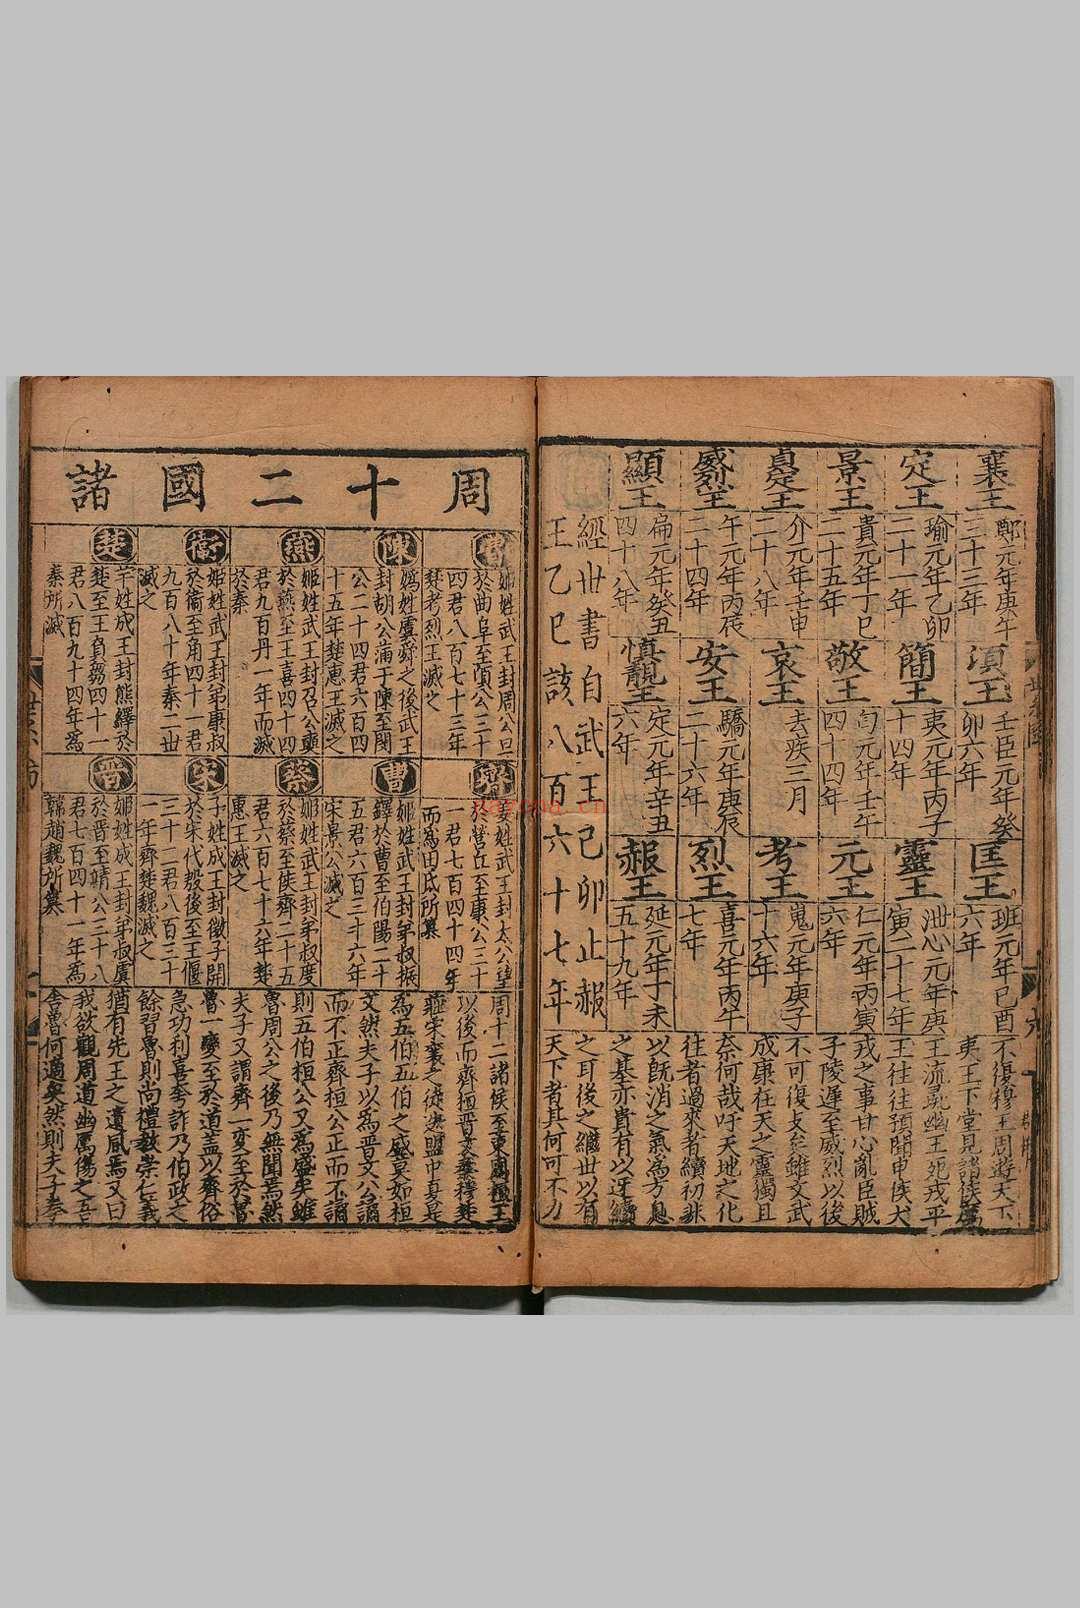 襄王
鄭元年庚午
三十三年
頃王
壬臣元年癸
卯六年
匡王
班元年己酉
六年
定王
瑜元年乙卯
二十一年
簡王
夷元年丙子
十四年
靈王
泄心元年庚
寅二十七年
景王
貴元年丁巳
二十五年
敬王
匄元年壬午
四十四年
元王
仁元年丙寅
六年
貞定王
介元年壬申
二十八年
哀王
去疾三月
考王
嵬元年庚子
十六年
威烈王
午元年丙辰
二十四年
安王
驕元年庚辰
二十六年
烈王
喜元年丙午
七年
顯王
扁元年癸丑
四十八年
慎靚王
定元年辛丑
六年
赧王
延元年丁未
五十九年
經世書自武王己卯止赧
王乙巳該八百六十七年
不復穆王周遊天下
夷王下堂見諸侯厲
王流彘幽王死戎平
王往往預聞申侯犬
戎之事甘心亂臣賊
子陵遲至威烈以後
不可復支矣雖文武
成康在天之靈獨且
奈何哉吁天地之化
往者過來者續初非
以既消之氣為方息
之基亦貴有以迓續
之耳後之繼世以有
天下者其何可不力
周十二國諸
魯
姬姓武王封周公旦
於曲阜至頃公三十
四君八百七十三年
楚考烈王滅之
陳
媯姓虞舜之後武王
封胡公滿于陳至閔
公二十四君六百四
十五年楚惠王滅之
燕
姬姓武王封召公奭
於燕至王喜四十四
君九百丹一年而滅
於秦
衛
姬姓武王封弟康叔
於衛至角四十一君
九百八十年秦二世
滅之
楚
芉姓成王封熊繹於
楚至王負芻四十一
君八百九十四年為
秦所滅
齊
姜姓武王封太公望
於營丘至康公三十
一君七百四十四年
而為田氏所篡
曹
姬姓武王封弟叔振
鐸於曹至伯陽二十
五君六百三十六年
宋景公滅之
蔡
姬姓武王封弟叔度
於蔡至侯齊二十五
君六百七十六年楚
惠王滅之
宋
子姓成王封微子開
於宋代殷後至王偃
三十二君八百三十
一年齊楚魏滅之
晉
姬姓成王封弟叔虞
於晉至靖公三十八
君七百四十一年為
韓趙魏所篡
周十二諸侯至東周襄王
以後而齊桓晉文秦穆楚
莊宋襄之徒迭盟中夏是
為五伯五伯之盛莫如桓
文然夫子以為晉文公譎
而不正齊桓公正而不譎
則五伯桓公又為盛矣雖
魯周公之後乃無聞焉然
夫子又謂齊一變至於魯
魯一變至於道蓋以齊俗
急功利喜夸詐乃伯政之
餘習魯則尚禮教崇仁義
猶有先王之遺風焉又曰
我欲觀周道幽厲傷之吾
舍魯何適矣然則夫子奉